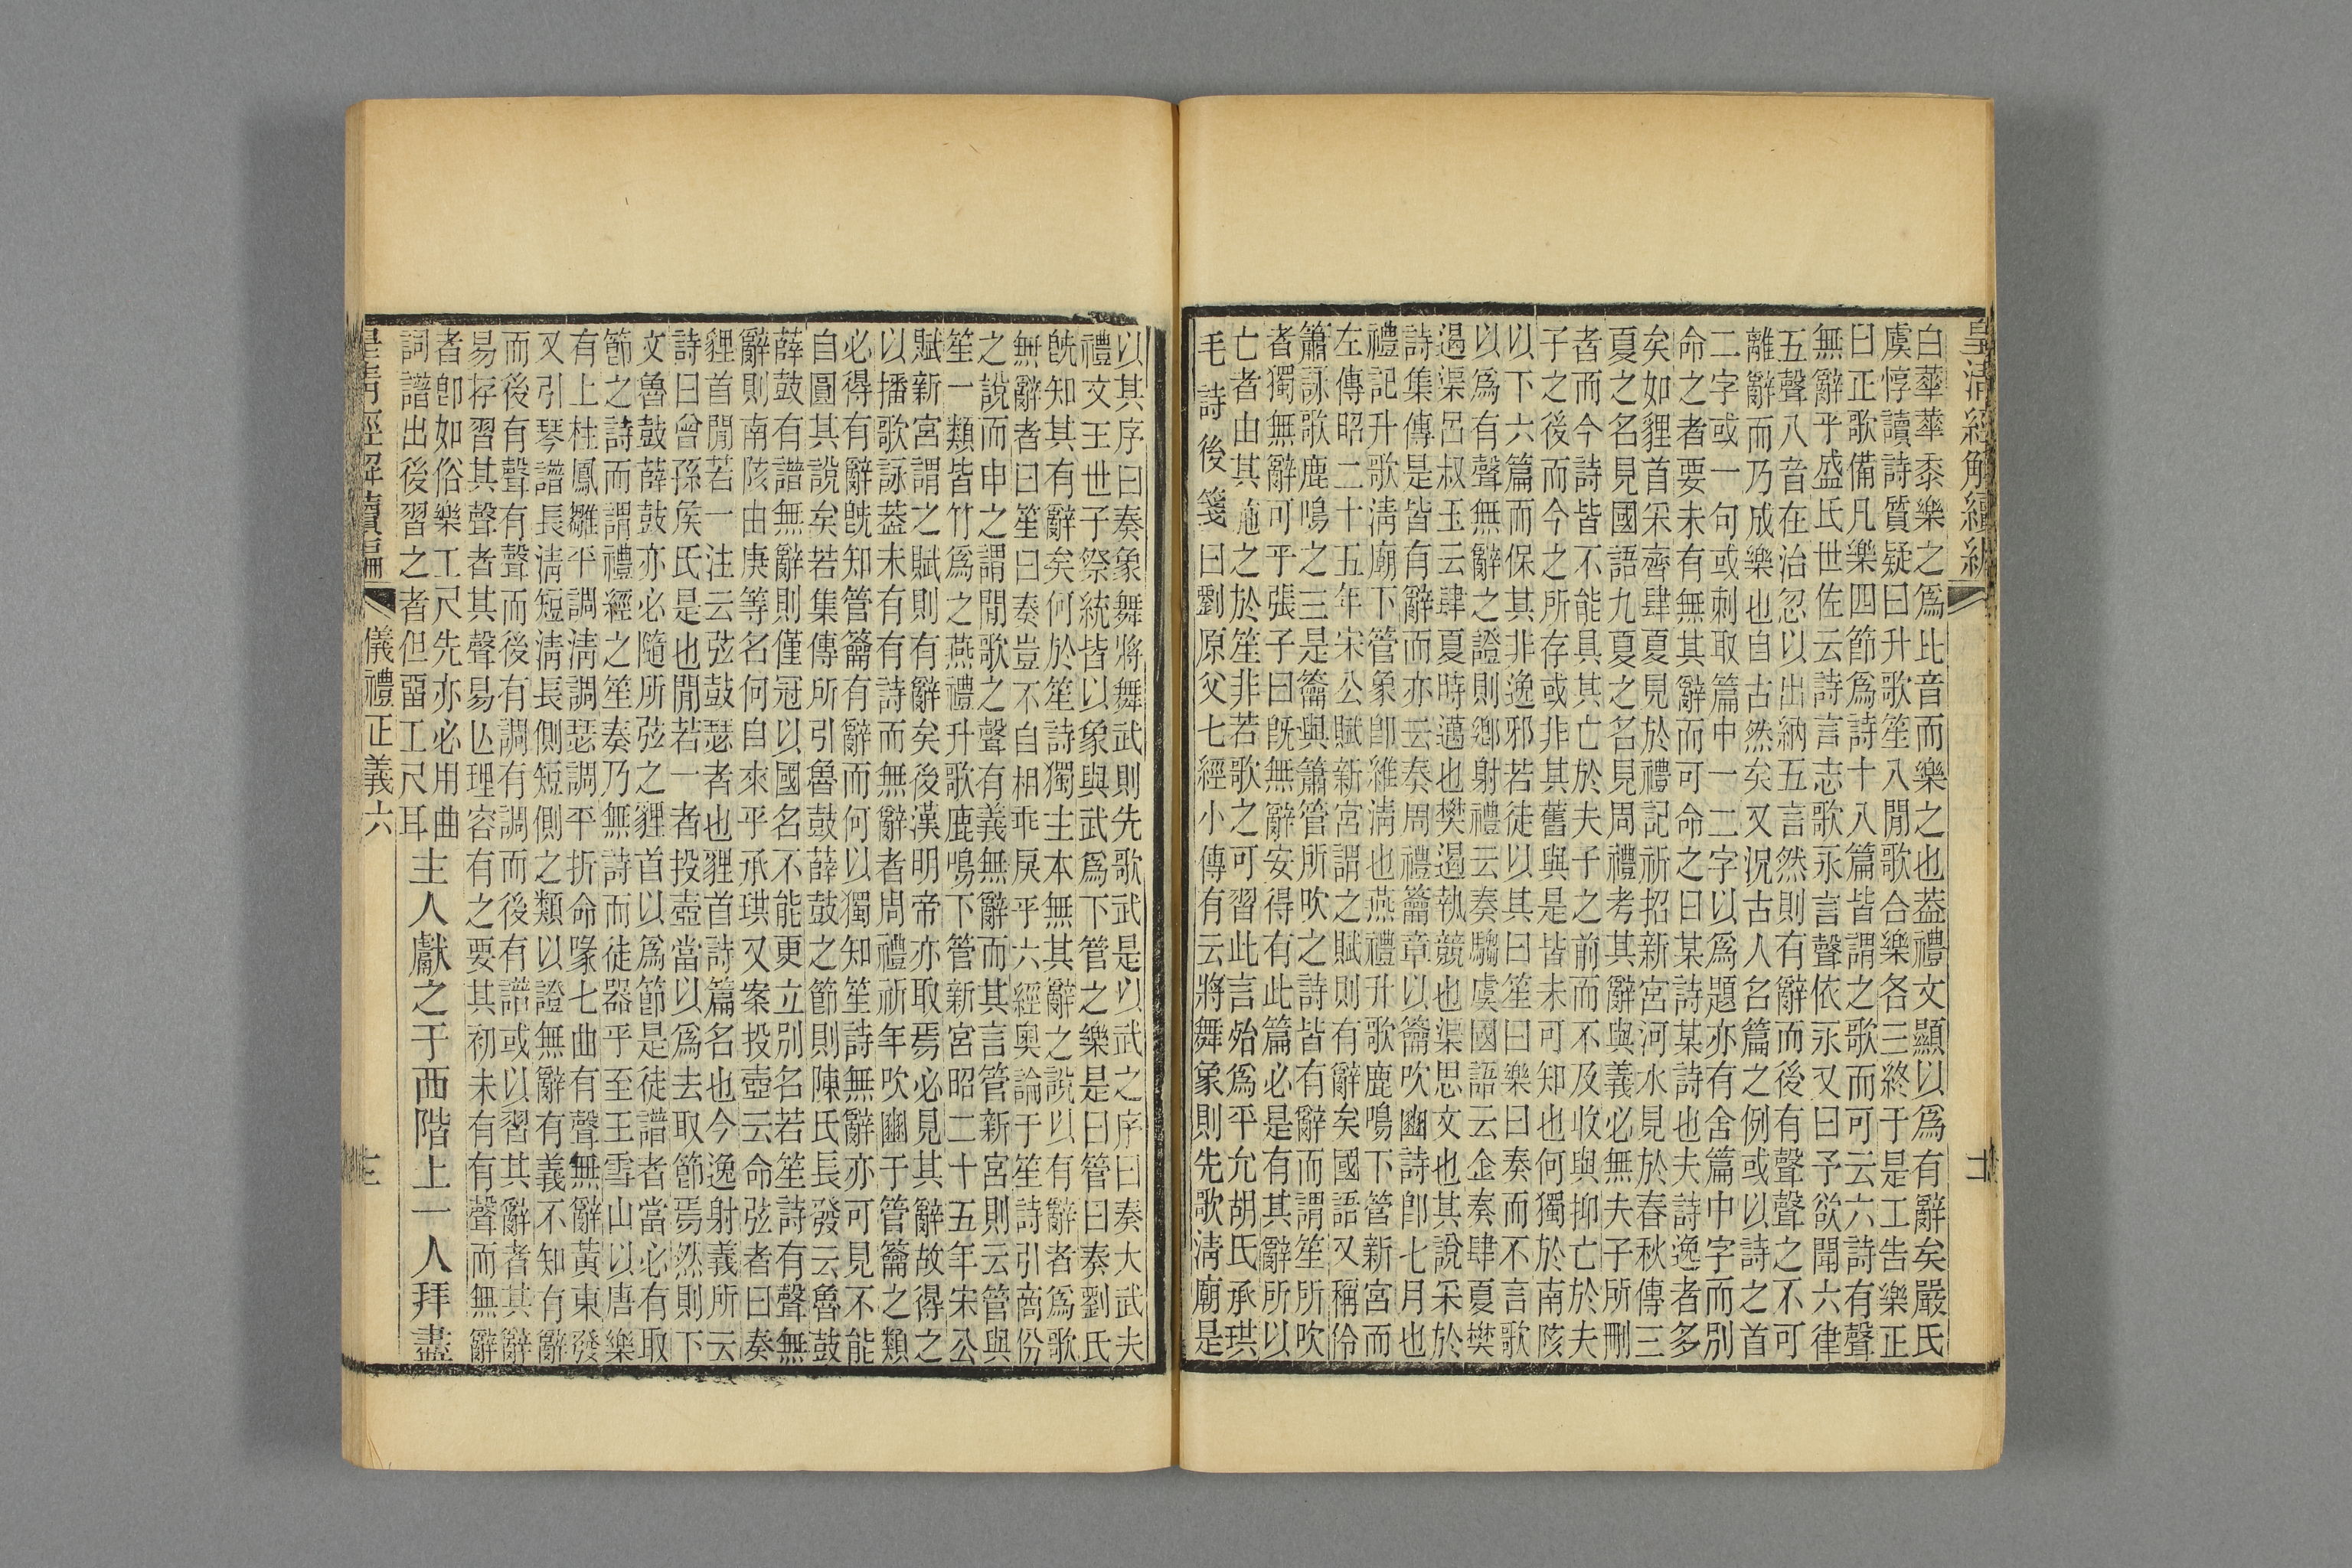 皇淸經解續編
白華華黍樂之爲比音而樂之也葢禮文顯以爲有辭矣嚴氏
虞惇讀詩質疑曰升歌笙入閒歌合樂各三終于是工告樂正
曰正歌備凡樂四節爲詩十八篇皆謂之歌而可云六詩有聲
無辭乎盛氏世佐云詩言志歌永言聲依永又曰予欲聞六律
五聲八音在治忽以出納五言然則有辭而後有聲聲之不可
離辭而乃成樂也自古然矣又況古人名篇之例或以詩之首
二字或一句或刺取篇中一二字以爲題亦有舍篇中字而別
命之者要未有無其辭而可命之曰某詩某詩也夫詩逸者多
矣如貍首采齊肆夏見於禮記祈招新宮河水見於春秋傳三
夏之名見國語九夏之名見周禮考其辭與義必無夫子所刪
者而今詩皆不能具其亡於夫子之前而不及收與抑亡於夫
子之後而今之所存或非其舊與是皆未可知也何獨於南陔
以下六篇而保其非逸邪若徒以其曰笙曰樂曰奏而不言歌
以爲有聲無辭之證則鄉射禮云奏騶虞國語云金奏肆夏樊
遏渠呂叔玉云肆夏時邁也樊遏執競也渠思文也其說采於
詩集傳是皆有辭而亦云奏周禮籥章以籥吹豳詩卽七月也
禮記升歌淸廟下管象卽維淸也燕禮升歌鹿鳴下管新宮而
左傳昭二十五年宋公賦新宮謂之賦則有辭矣國語又稱伶
簫詠歌鹿鳴之三是籥與簫管所吹之詩皆有辭而謂笙所吹
者獨無辭可乎張子曰旣無辭安得有此篇必是有其辭所以
亡者由其施之於笙非若歌之可習此言殆爲平允胡氏承珙
毛詩後箋曰劉原父七經小傳有云將舞象則先歌淸廟是
以其序曰奏象舞將舞武則先歌武是以武之序曰奏大武夫
禮文王世子祭統皆以象與武爲下管之樂是曰管曰奏劉氏
旣知其有辭矣何於笙詩獨主本無其辭之說以有辭者爲歌
無辭者曰笙曰奏豈不自相乖戾乎六經奧論于笙詩引商份
之說而申之謂閒歌之聲有義無辭而其言管新宮則云管與
笙一類皆竹爲之燕禮升歌鹿鳴下管新宮昭二十五年宋公
賦新宮謂之賦則有辭矣後漢明帝亦取焉必見其辭故得之
以播歌詠葢未有有詩而無辭者周禮祈年吹豳于管籥之類
必得有辭旣知管籥有辭而何以獨知笙詩無辭亦可見不能
自圓其說矣若集傳所引魯鼓薛鼓之節則陳氏長發云魯鼓
薛鼓有譜無辭則僅冠以國名不能更立別名若笙詩有聲無
辭則南陔由庚等名何自來乎承珙又案投壺云命弦者曰奏
貍首閒若一注云弦鼓瑟者也貍首詩篇名也今逸射義所云
詩曰曾孫侯氏是也閒若一者投壺當以爲去取節焉然則下
文魯鼓薛鼓亦必隨所弦之貍首以爲節是徒譜者當必有取
節之詩而謂禮經之笙奏乃無詩而徒器乎至王雪山以唐樂
有上柱鳳雛平調淸調瑟調平折命喙七曲有聲無辭黃東發
又引琴譜長淸短淸長側短側之類以證無辭有義不知有辭
而後有聲有聲而後有調有調而後有譜或以習其辭者其辭
易存習其聲者其聲易亾理容有之要其初未有有聲而無辭
者卽如俗樂工尺先亦必用曲
詞譜出後習之者但畱工尺耳
主人獻之于西階上一人拜盡
皇淸經解續編
儀禮正義六